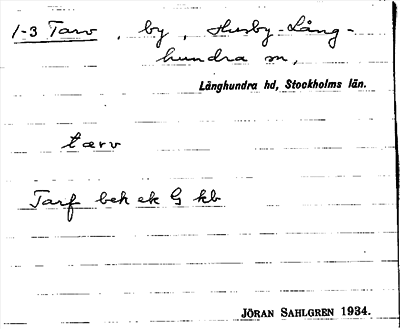 1-3 Tarv, by, Husby-Lång-
hundra sn,
Långhundra hd, Stockholms län.
tærv
Tarf beh ek G kb
JÖRAN SAHLGREN 1934.